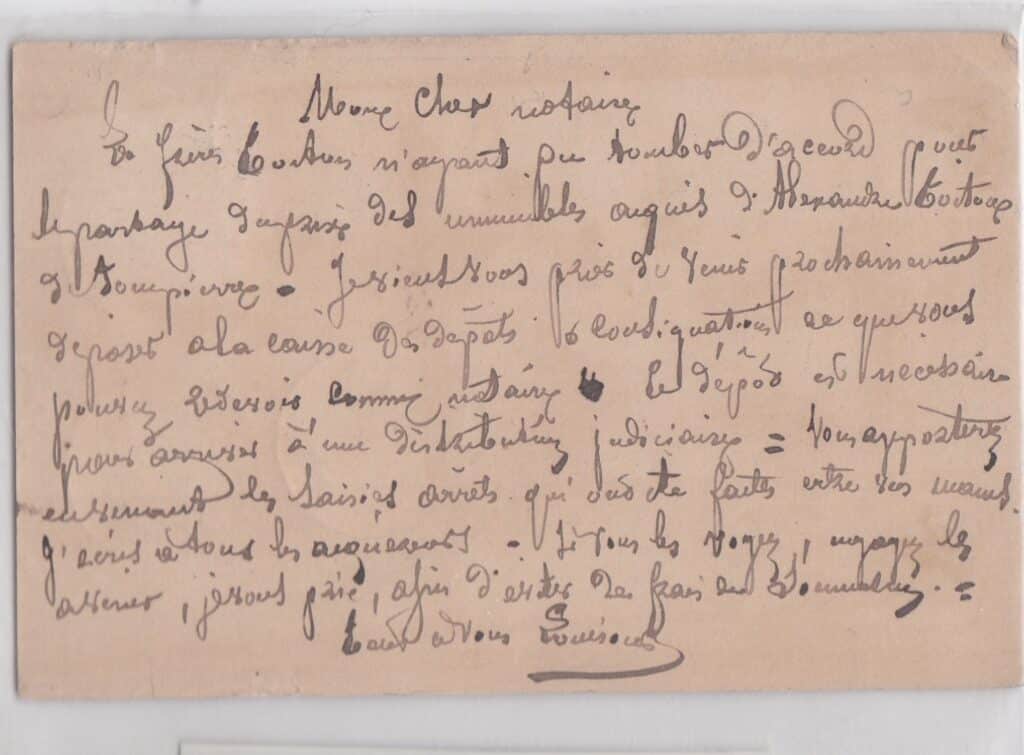 Mon cher notaire
Les frères n'ayant pu tomber d'accord pour
le partage du prix des immeubles acquis d'Alexandre
de Dompierre = Je viens vous prier de venir prochainement
déposer à la caisse des dépôts & consignations ce que vous
pouvez redevoir comme notaire Le dépôt est nécessaire
pour arriver à une distribution judiciaire = Vous apporterez
en venant les saisies arrêts qui ont été faites entre vos mains.
J'écris à tous les acquéreurs - Si vous les voyez, engagez les
à venir, je vous prie, afin d'éviter des frais de sommation. =
Tout à vous